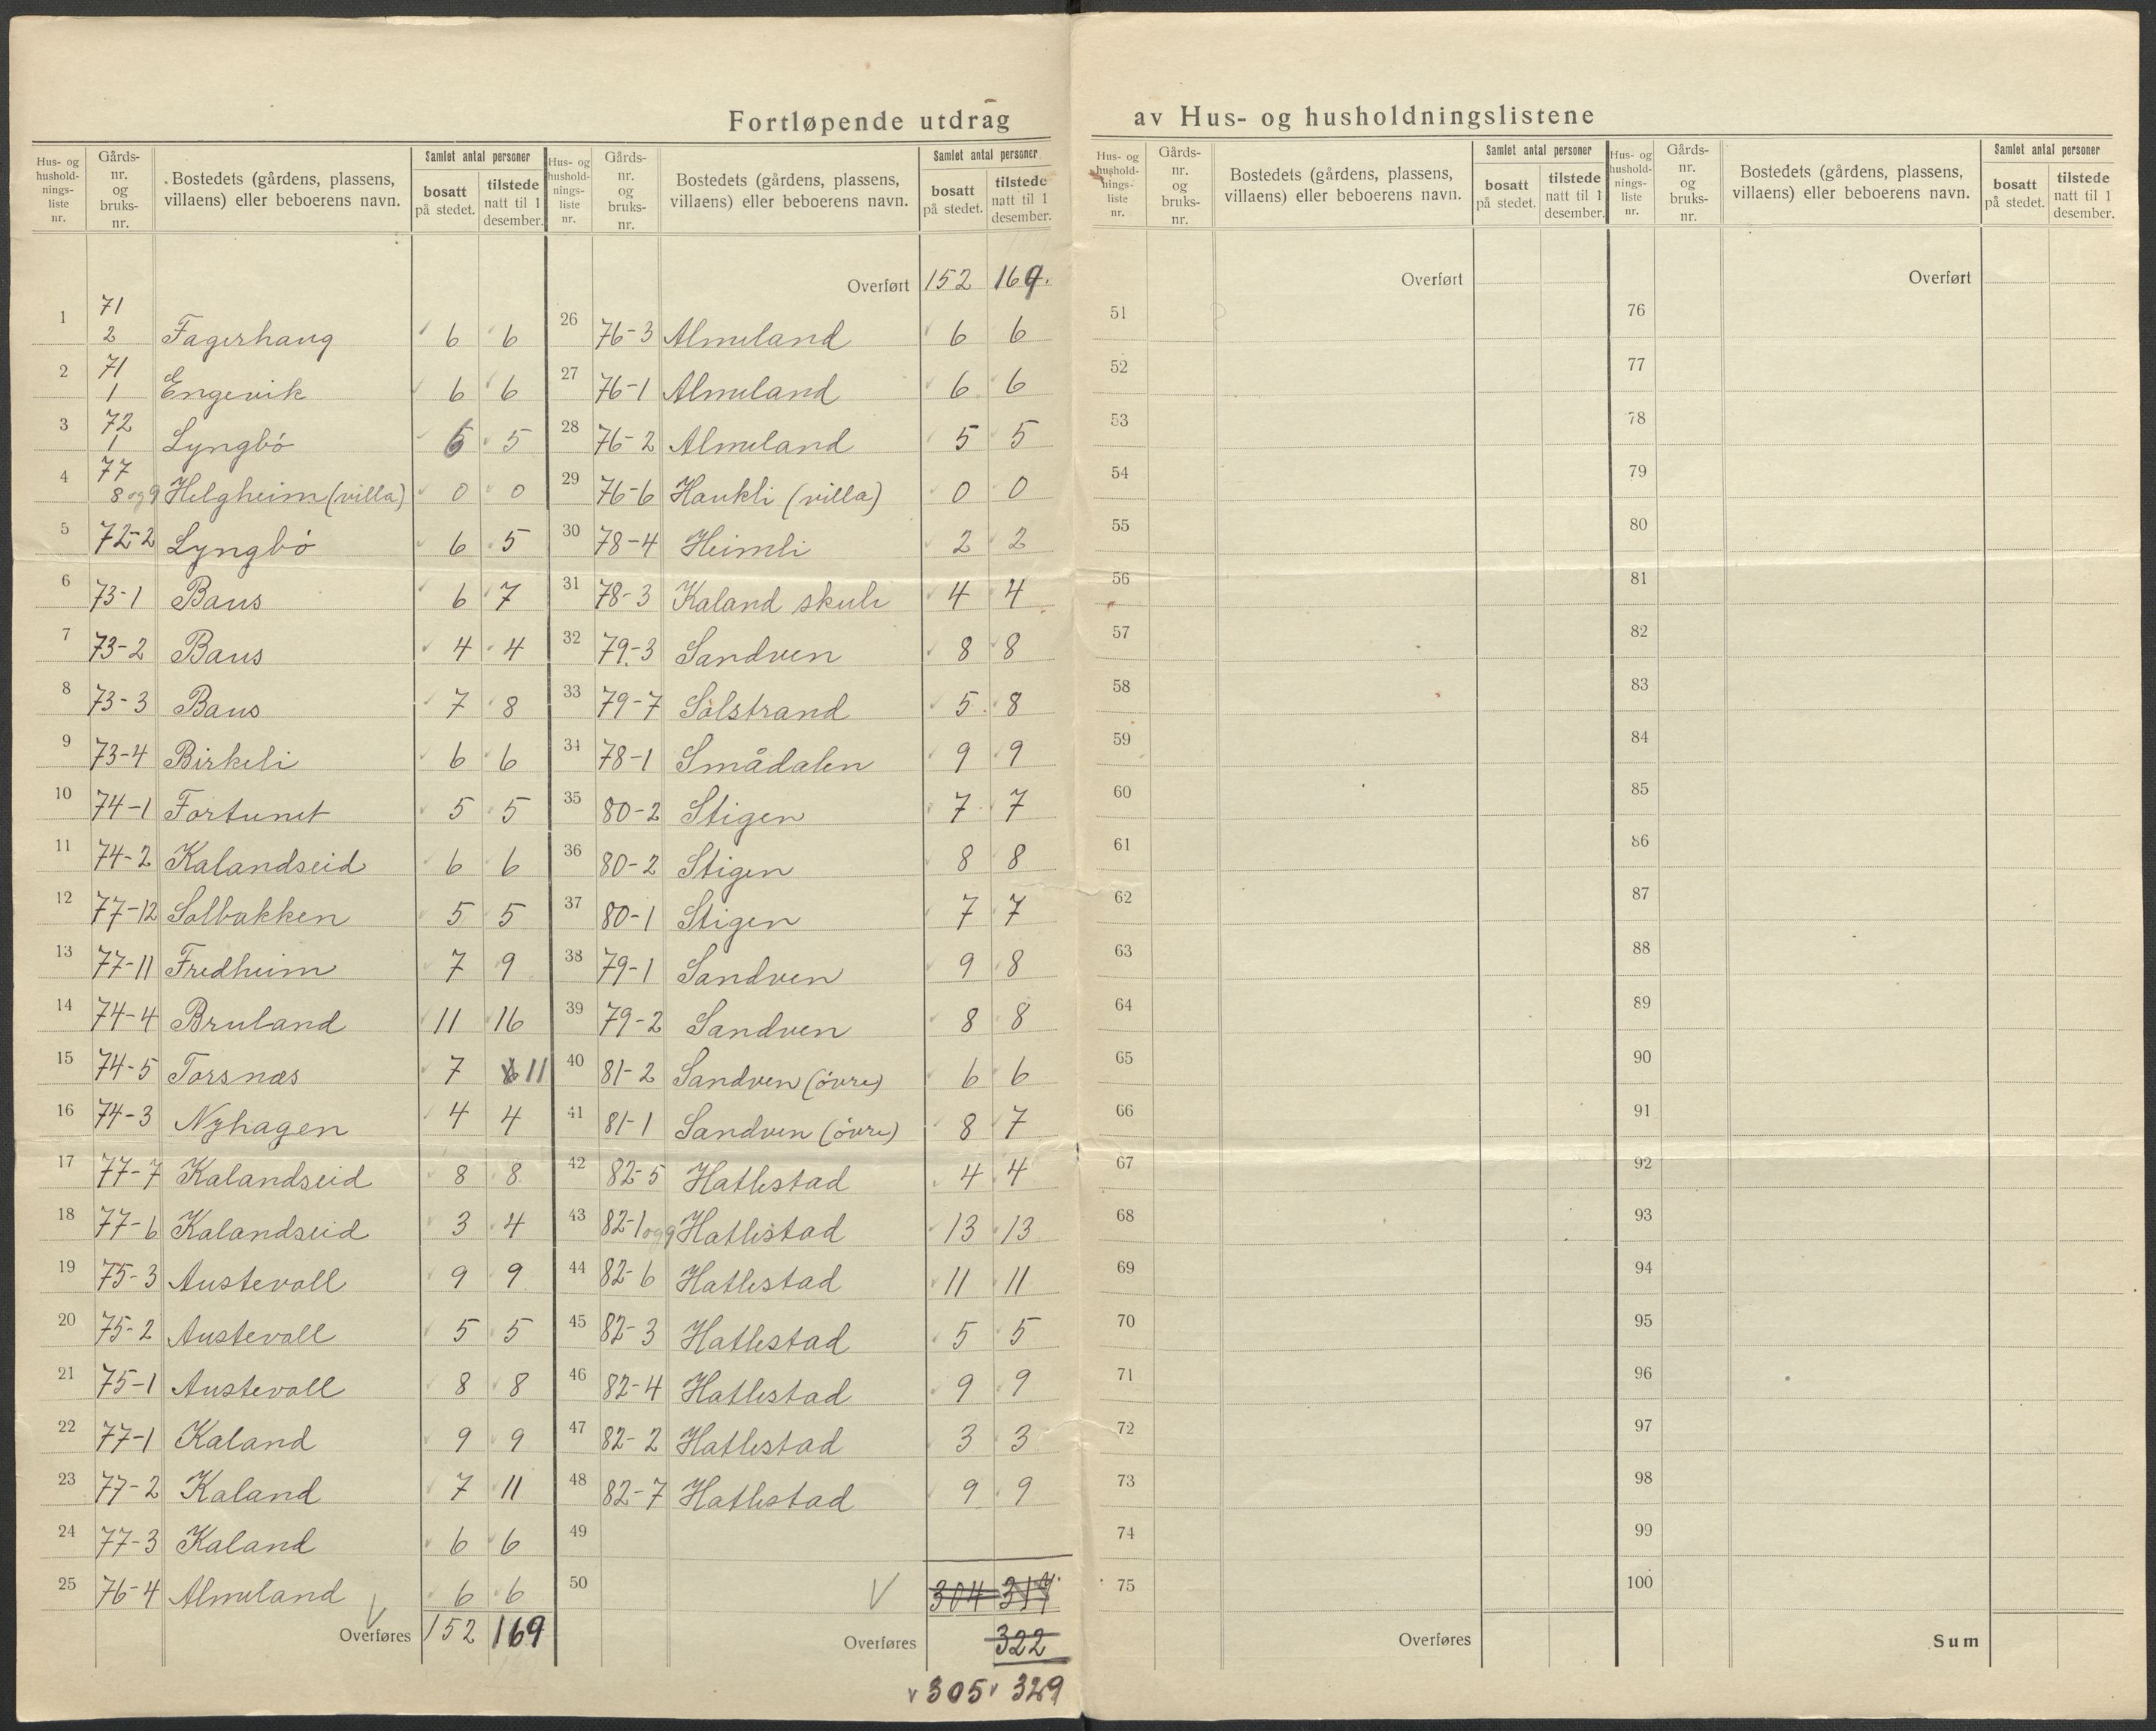 Fortløpende utdrag av Hus- og husholdningslistene
Hus- og hushold- nings- liste nr. | Gårds- nr. og bruks- nr. | Bostedets (gårdens, plassens, villaens) eller beboerens navn. | Samlet antal personer | bosatt på stedet. | tilstede natt til 1 desember.
1 71 2 Fagerhaug 6 6
2 71 1 Engevik 6 6
3 72 1 Lyngbö 5
4 77 8 og 9 Helgheim (villa) 0 0
5 72-2 Lyngbö 6 5
6 73-1 Baus 6 7
7 73-2 Baus 4 4
8 73-3 Baus 7 8
9 73-4 Birkeli 6 6
10 74-1 Fortunet 5 5
11 74-2 Kalandseid 6 6
12 77-12 Solbakken 5 5
13 77-11 Fredheim 7 9
14 74-4 Bruland 11 16
15 74-5 Torsnæs 7 11
16 74-3 Nyhagen 4 4
17 77-7 Kalandseid 8 8
18 77-6 Kalandseid 3 4
19 75-3 Austevoll 9 9
20 75-2 Austevoll 5 5
21 75-1 Austevoll 8 8
22 77-1 Kaland 9 9
23 77-2 Kaland 7 11
24 77-3 Kaland 6 6
25 76-4 Almeland 6 6
Overføres 152 169
Hus- og hushold- nings- liste nr. | Gårds- nr. og bruks- nr. | Bostedets (gårdens, plassens, villaens) eller beboerens navn. | Samlet antal personer | bosatt på stedet. | tilstede natt til 1 desember.
Overført 152 169.
26 76-3 Almeland 6 6
27 76-1 Almeland 6 6
28 76-2 Almeland 5 5
29 76-6 Haukli (villa) 0 0
30 78-4 Heimli 2 2
31 78-3 Kaland skule 4 4
32 79-3 Sandven 8 8
33 79-7 Solstrand 5 8
34 78-1 Smådalen 9 9
35 80-2 Stigen 7 7
36 80-2 Stigen 8 8
37 80-1 Stigen 7 7
38 79-1 Sandven 9 8
39 79-2 Sandven 8 8
40 81-2 Sandven (övre) 6 6
41 81-1 Sandven (övre) 8 7
42 82-5 Hatlestad 4 4
43 82-1 og 9 Hatlestad 13 13
44 82-6 Hatlestad 11 11
45 82-3 Hatlestad 5 5
46 82-4 Hatlestad 9 9
47 82-2 Hatlestad 3 3
48 82-7 Hatlestad 9 9
49
50 304
Overføres 322
305 329
Hus- og hushold- nings- liste nr. | Gårds- nr. og bruks- nr. | Bostedets (gårdens, plassens, villaens) eller beboerens navn. | Samlet antal personer | bosatt på stedet. | tilstede natt til 1 desember.
Overført
51
52
53
54
55
56
57
58
59
60
61
62
63
64
65
66
67
68
69
70
71
72
73
74
75
Overføres
Hus- og hushold- nings- liste nr. | Gårds- nr. og bruks- nr. | Bostedets (gårdens, plassens, villaens) eller beboerens navn. | Samlet antal personer | bosatt på stedet. | tilstede natt til 1 desember.
Overført
76
77
78
79
80
81
82
83
84
85
86
87
88
89
90
91
92
93
94
95
96
97
98
99
100
Sum